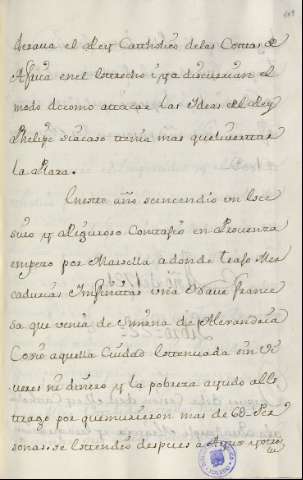 el Rey Catholico de las Costas de
Africa en el Estrecho i ya discurrian el
modo de como attacar las Ideas del Rey
Phelipe si acaso tenia mas que
la Plaza.
En este año se encendio un
y Peligroso Contagio en Provenza
empezo por Marsella a donde trajo Mer
cadurias Infinitas una Nave france
sa que venia de de Alexandria
Cogio aquella Ciudad extenuada sin Vi
veres ni dinero y la pobreza ayudo al
trago por que murieron mas de Per
sonas. se estendio despues a y